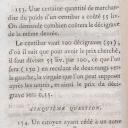 153. Une certaine quantité de marchan-
dise du poids d'un centibar a coûté 55 liv.
On demande combien coûtera le décigrave
de la même denrée.
Le centibar vaut 100 décigraves (92),
d'où il suit que pour avoir le prix cherché,
il faut diviser 55 liv. par 100, ce que l'on
fera (150) en reculant de deux rangs vers
la gauche, la virgule que l'on peut supposer
après les unités, et ainsi le prix du déci-
grave sera 0,55.
CINQUIÈME QUESTION.
154. Un citoyen ayant cédé à un autre